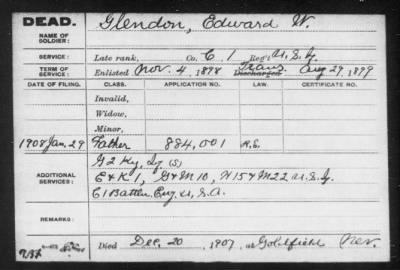 DEAD.
NAME OF SOLDIER:
Glendon, Edward W.
SERVICE:
Late rank, Co. C, 1 Reg't U.S.Y.
TERM OF SERVICE:
Enlisted Nov. 4, 1898 Discharged Trans. Aug 29, 1899
DATE OF FILING. CLASS. APPLICATION NO. LAW. CERTIFICATE NO.
Invalid,
Widow,
Minor,
1908 Jan. 29 Father 884,001
ADDITIONAL SERVICES:
G 2 Ky. (S)
E & K 1, G & M 10, H 15 & M 22 U.S.
C 1 Battln. Eng. U.S.A.
REMARKS:
Died Dec. 20, 1907, at Goldfield Nev.